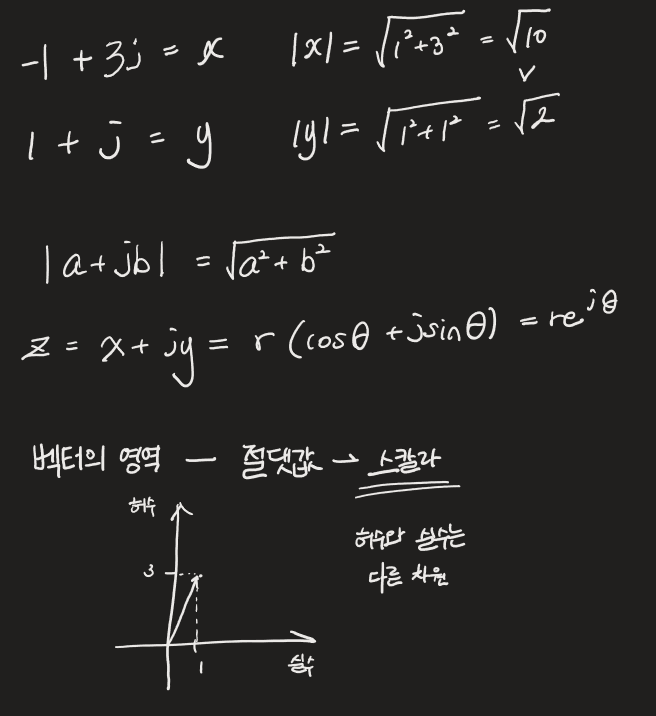 -1 + 3j = x |x| = √(1²+3²) = √10
1 + j = y |y| = √(1²+1²) = √2
|a+jb| = √(a²+b²)
z = x + jy = r (cosθ + jsinθ) = re^{jθ}
벡터의 영역 — 절댓값 → 스칼라
허수
허수와 실수는
3
다른 차원
1
실수